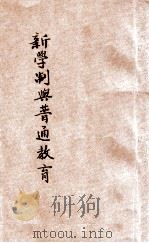 新學制與普通教育
mtoou.info